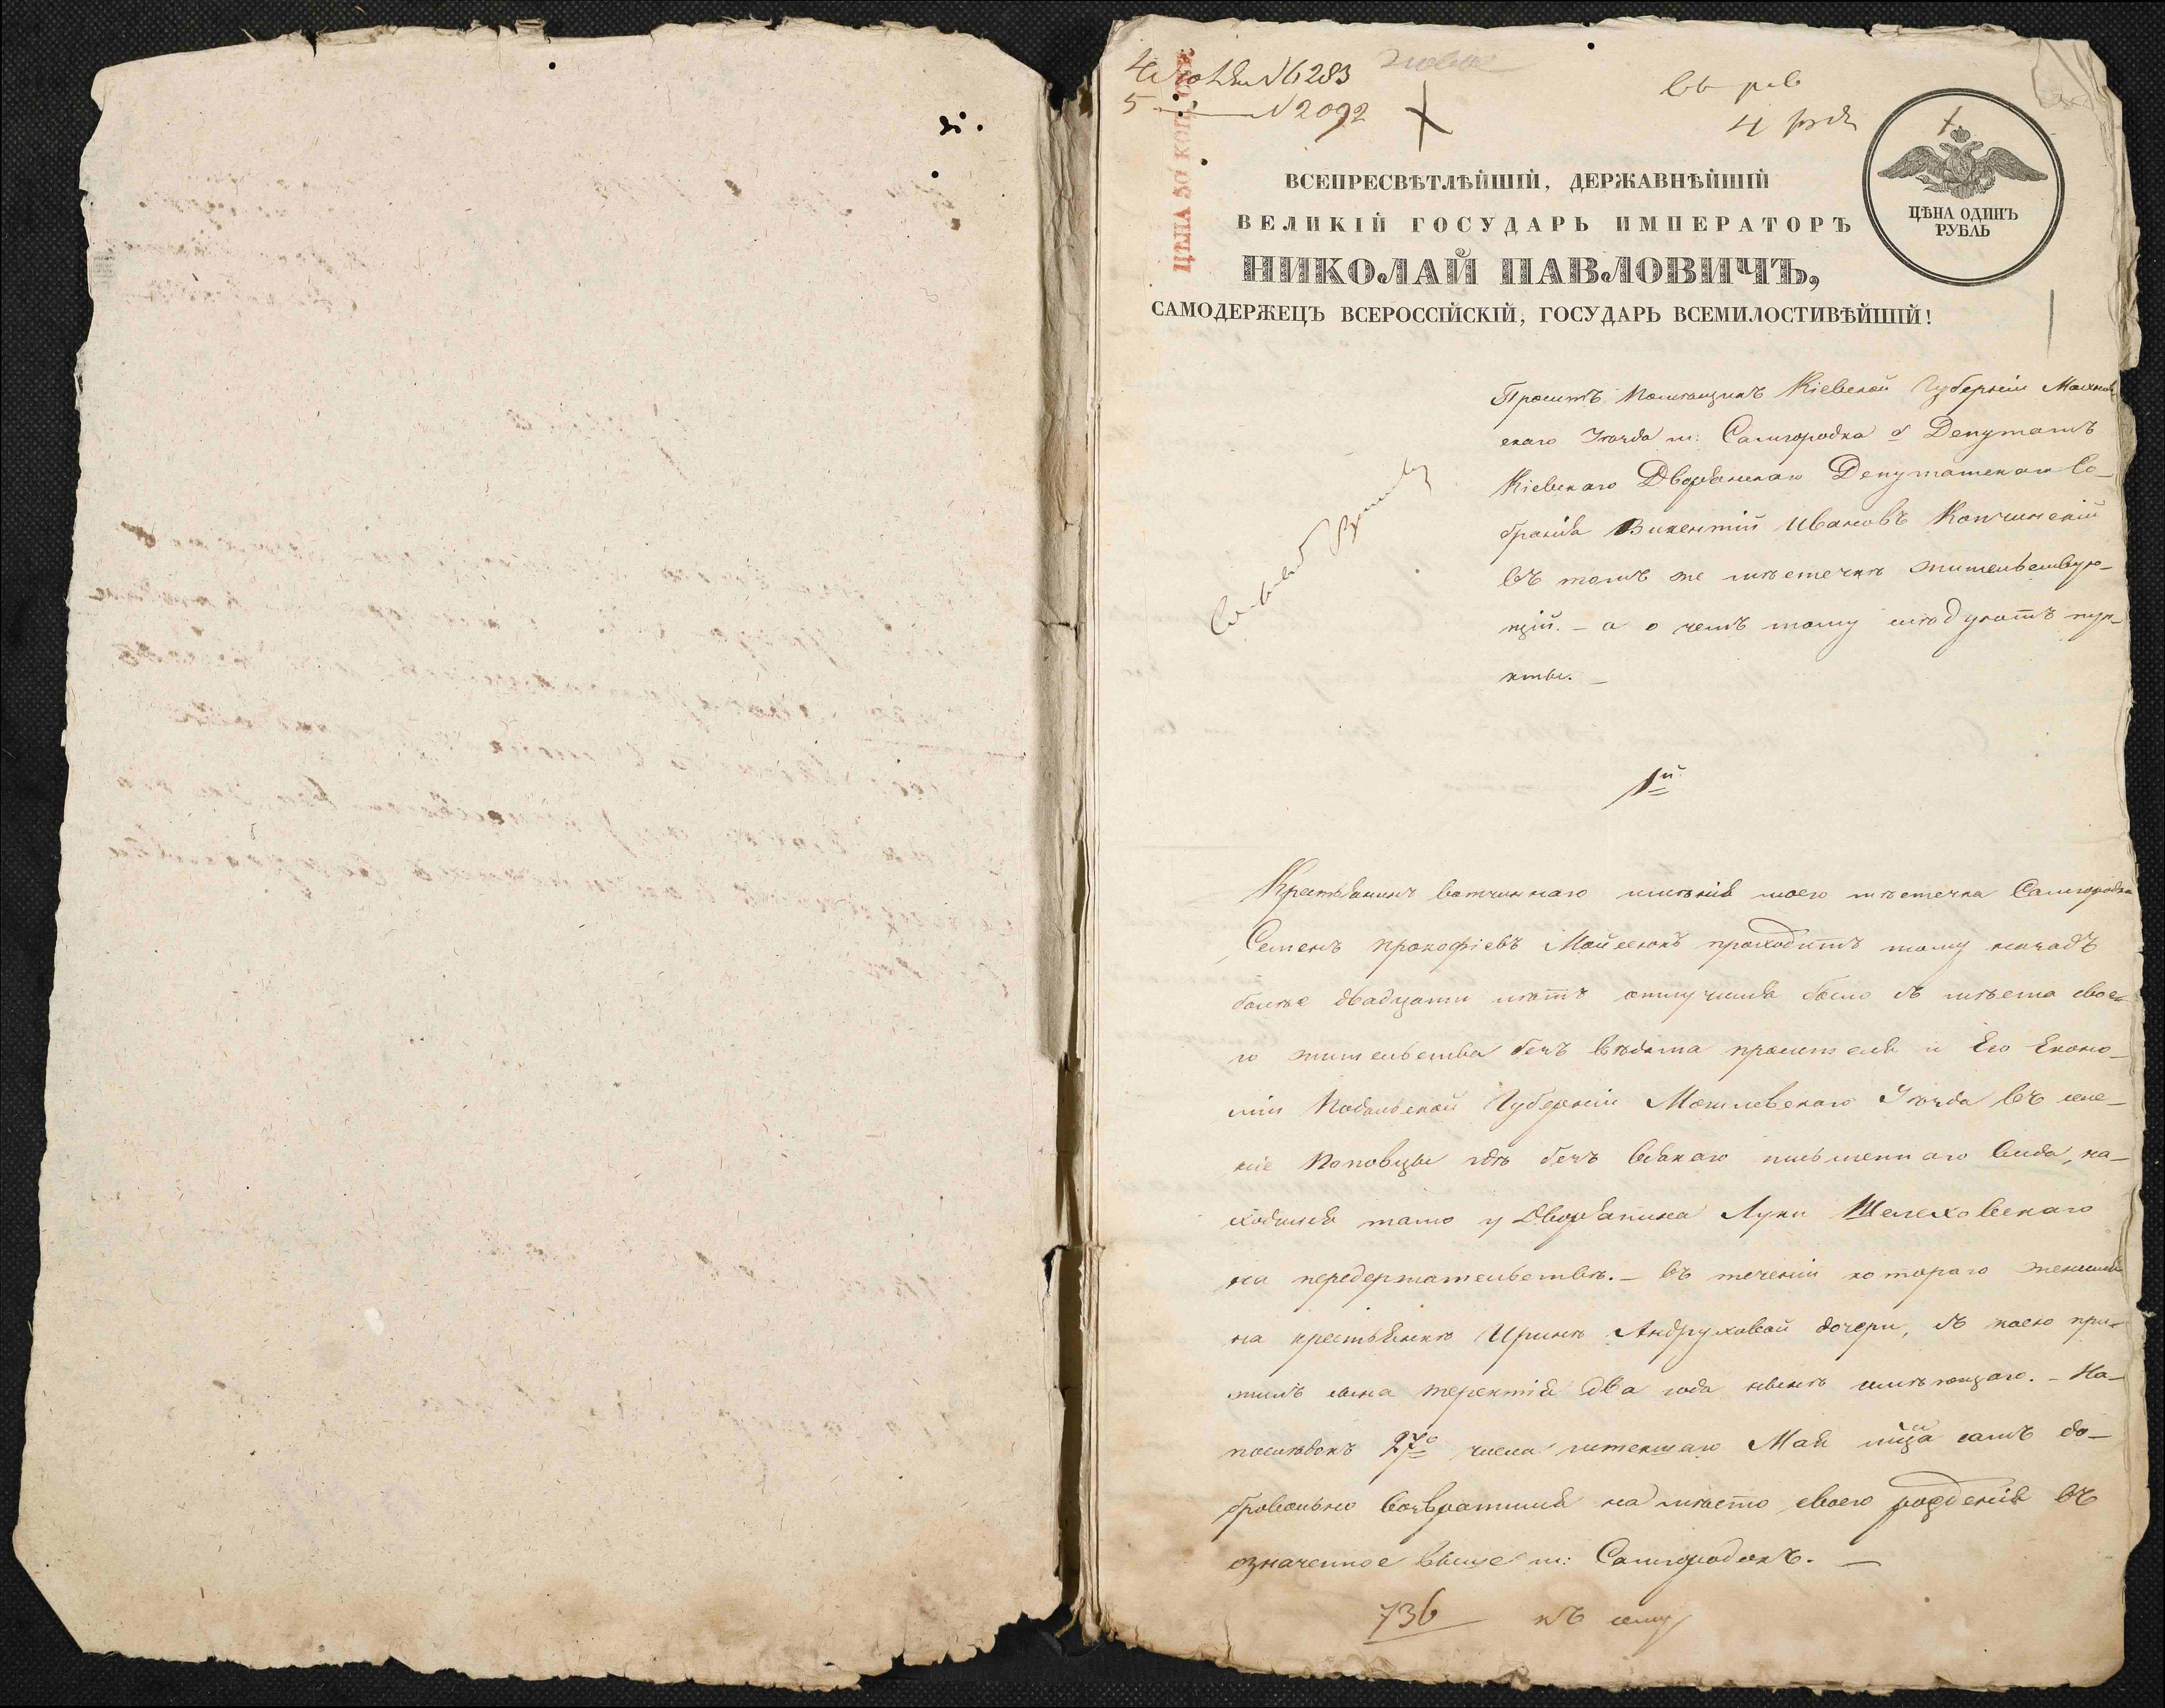 4 Июня № 6283
5 — № 2092
4 рев
ЦѢНА 50 КОП.
ЦѢНА ОДИНЪ
РУБЛЬ
ВСЕПРЕСВѢТЛѢЙШІЙ, ДЕРЖАВНѢЙШІЙ
ВЕЛИКІЙ ГОСУДАРЬ ИМПЕРАТОРЪ
НИКОЛАЙ ПАВЛОВИЧЪ,
САМОДЕРЖЕЦЪ ВСЕРОССІЙСКІЙ, ГОСУДАРЬ ВСЕМИЛОСТИВѢЙШІЙ!
Проситъ Помѣщикъ Кіевской Губерніи Махнов
скаго Уѣзда м: Самгородка Депутатъ
Кіевскаго Дворянскаго Депутатскаго Со-
бранія Викентій Ивановъ Копчинскій
въ томъ же мѣстечкѣ жительствую-
щій. – а о чемъ тому слѣдуютъ пун-
кты. –
1й
Крестьянинъ вотчиннаго имѣнія моего мѣстечка Самгородка
Семенъ Прокофіевъ Мойсеюкъ проходитъ тому назадъ
болѣе двадцати лѣтъ отлучился было съ мѣста свое-
го жительства безъ вѣдома просителя и Его Еконо-
міи Подольской Губерніи Могилевскаго Уѣзда въ селе-
ніе Поповцы гдѣ безъ всякаго письменнаго вида, на-
ходился тамо у Дворянина Луки Шелеховскаго
на передержательствѣ. – въ теченіи котораго женился
на крестьянкѣ Иринѣ Андруховой дочери, съ коею при-
жилъ сына Терентія два года нынѣ имѣющаго. – На-
послѣдокъ 27го числа истекшаго Мая мца самъ до-
бровольно возвратился на мѣсто своего рожденія въ
означенное выше м: Самгородокъ. –
736 къ сему